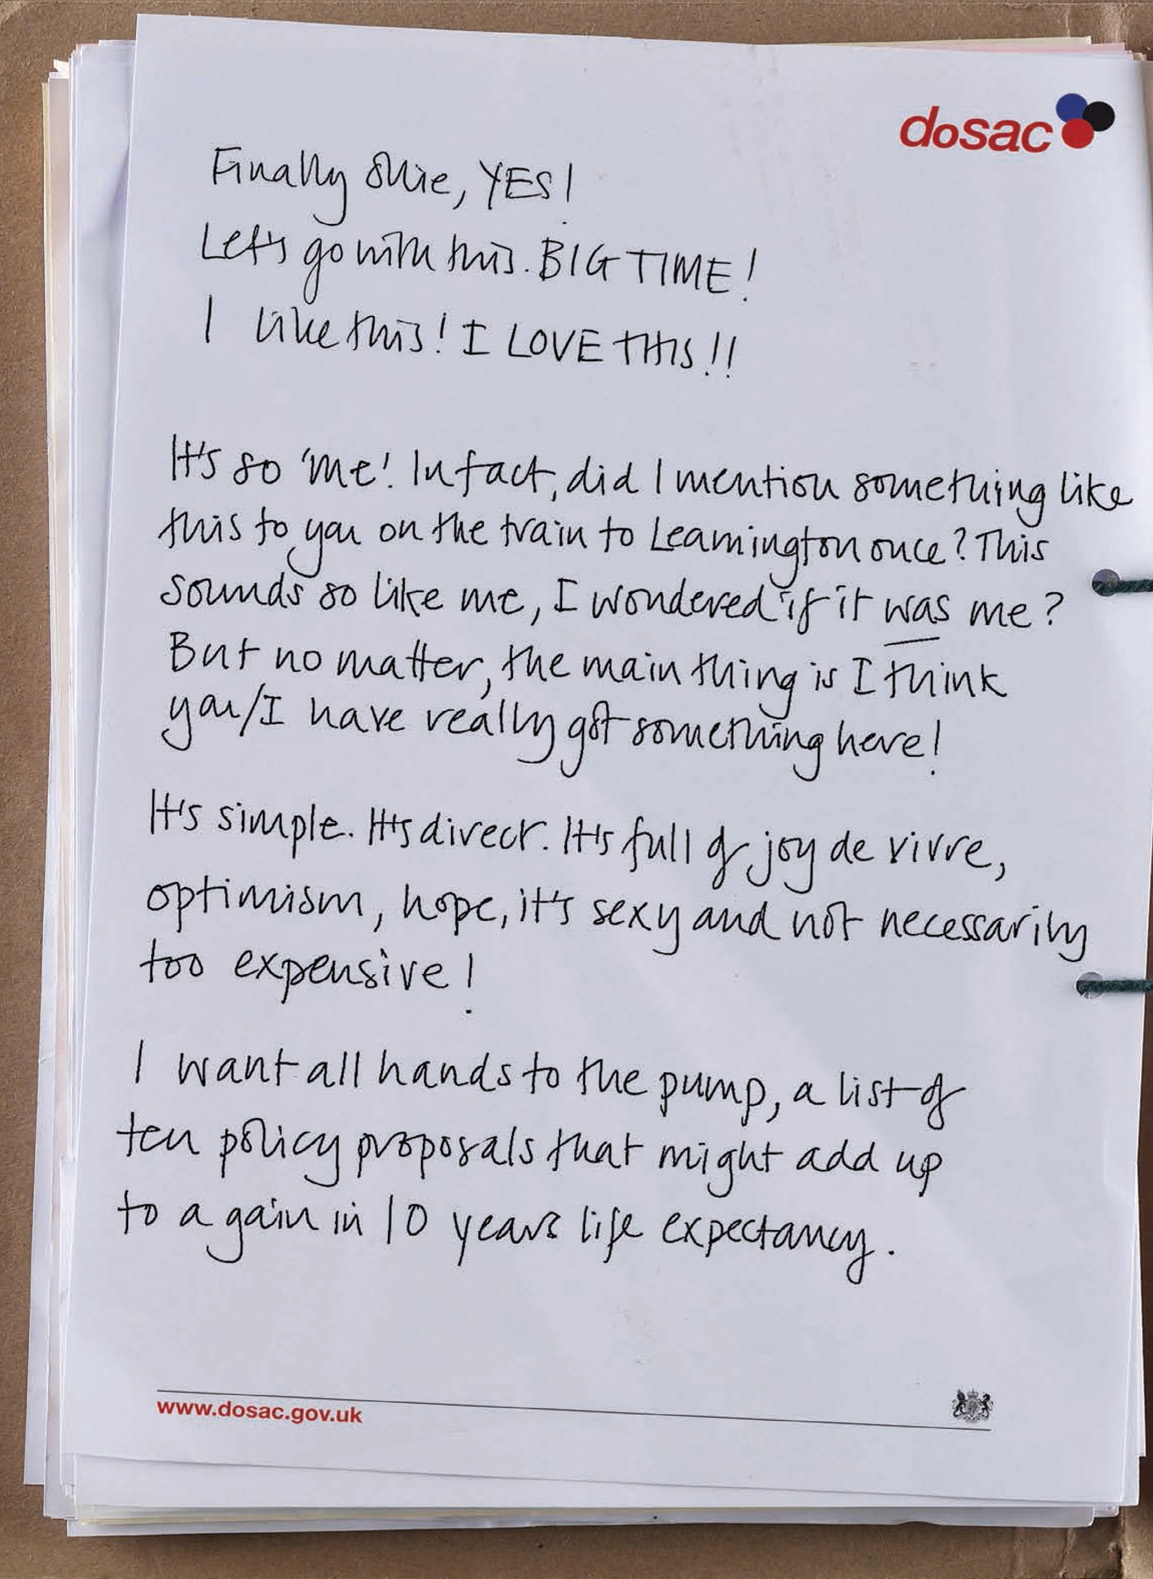 dosac
Finally Ollie, YES!
Let's go with this. BIG TIME!
I like this! I LOVE THIS!!
It's so 'me'! In fact, did I mention something like
this to you on the train to Leamington once? This
sounds so like me, I wondered if it was me?
But no matter, the main thing is I think
you/I have really got something here!
It's simple. It's direct. It's full of joy de vivre,
optimism, hope, it's sexy and not necessarily
too expensive!
I want all hands to the pump, a list of
ten policy proposals that might add up
to a gain in 10 years life expectancy.
www.dosac.gov.uk